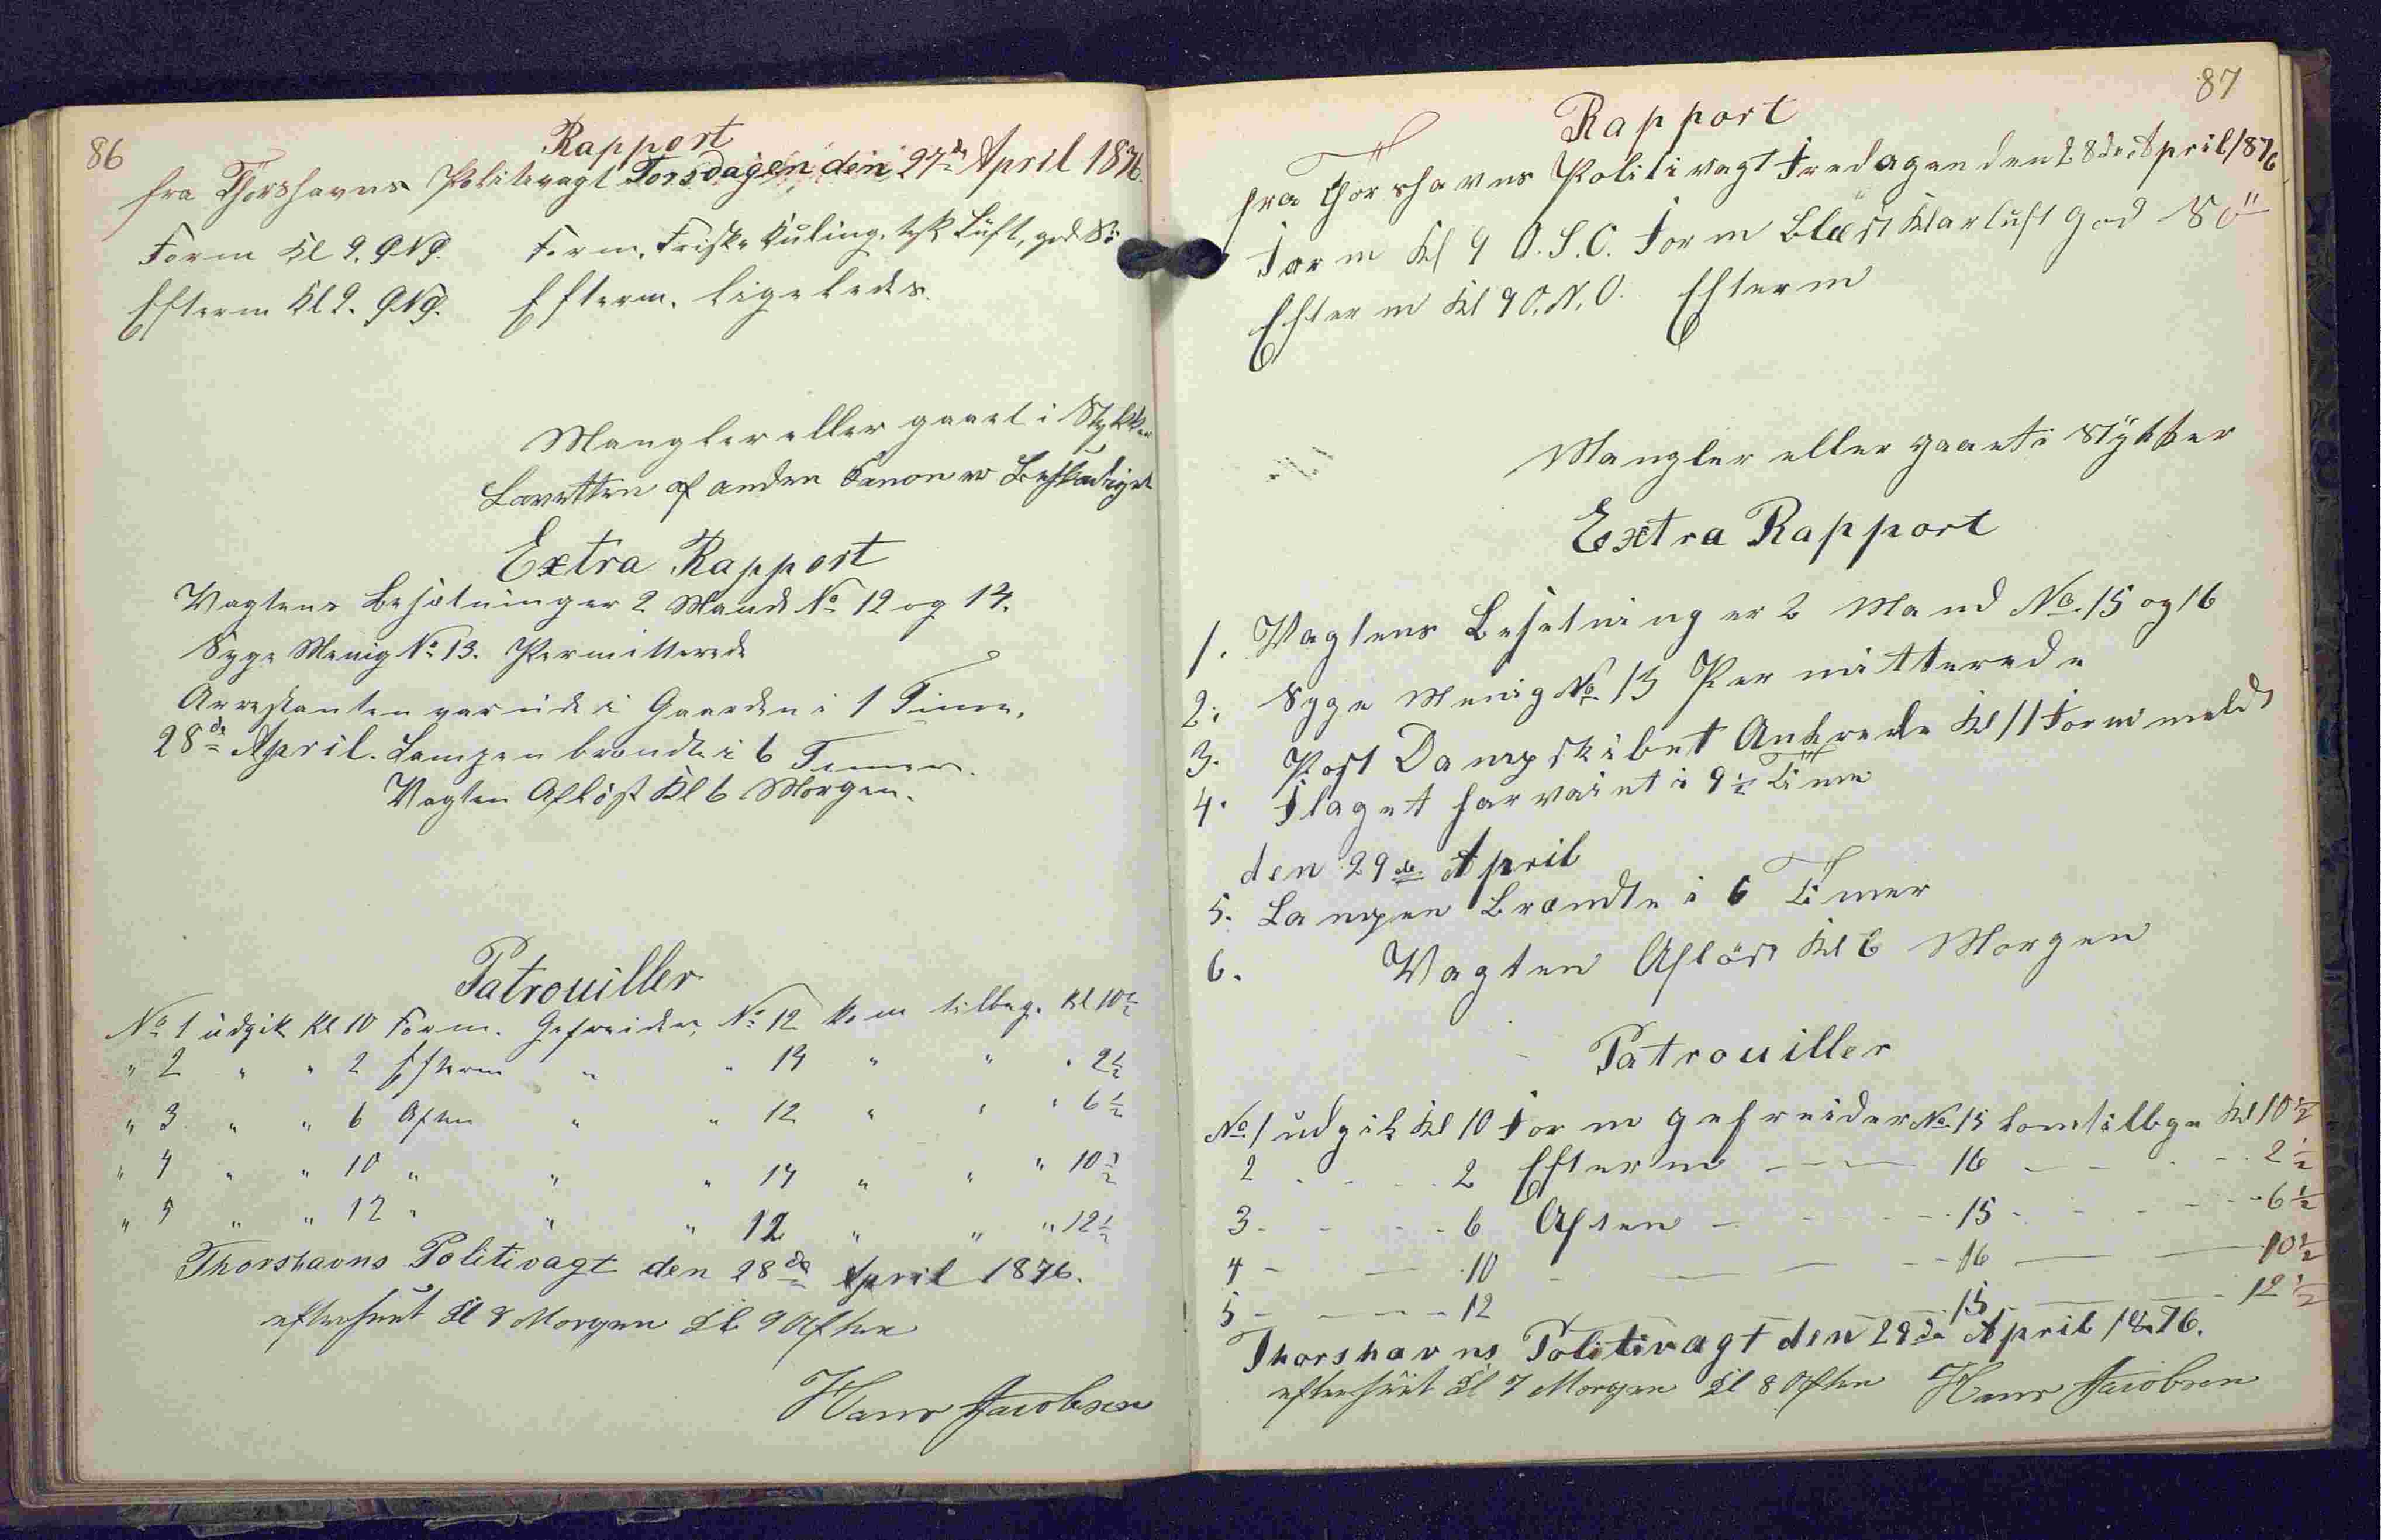 86
Rapport
fra Thorshavns Politivagt Torsdagen den 27de April 1876.
Form Kl 9. ONO. Form. Friske Kuling, tyk Luft, god Sö
Efterm Kl 9. ONO. Efterm. ligeledes.
Mangler eller gaaet i Stykker
Lavetten af anden Canon er Beskadiget
Extra Rapport
Vagtens Besætning er 2 Mand No 12 og 14.
Syge Menig No 13. Permitterede
Arrestanten var ude i Gaarden i 1 Time.
28de April. Lampen brændte i 6 Timer.
Vagten Aflöst Kl 6 Morgen.
Patrouiller
No 1 udgik Kl 10 Form. Gefreider No 12 kom tilbage Kl 10 1/2
" 2 " " 2 Efterm " " 14 " " " 2 1/2
" 3 " " 6 Aften " " 12 " " " 6 1/2
" 4 " " 10 " " " 14 " " " 10 1/2
" 5 " " 12 " " " 12 " " " 12 1/2
Thorshavns Politivagt den 28de April 1876.
efterseet Kl 8 Morgen Kl 9 Aften
Hans Jacobsen
87
Rapport
fra Thorshavns Politivagt Fredagen den 28de April 1876
Form Kl 9 O.S.O. Form Blæst Klarluft god Sö
Efterm Kl 9 O.N.O. Efterm
Mangler eller gaaet i Stykker
Extra Rapport
1. Vagtens Besetning er 2 Mand No. 15 og 16
2. Syge Menig No 13 Permitterede
3. Post Dampskibet Ankrede Kl 11 Form meldt
4. Flaget har vaiet i 9 1/2 Time
den 29de April
5. Lampen Brændte i 6 Timer
6. Vagten Aflöst Kl 6 Morgen
Patrouiller
No 1 udgik Kl 10 Form gefreider No 15 kom tilbge Kl 10 1/2
2 - - - - 2 Efterm - - - 16 - - - - 2 1/2
3 - - - - 6 Aften - - - 15 - - - - 6 1/2
4 - - 10 - - - - 16 - - 10 1/2
5 - - - - 12 - - - 15 - - - 12 1/2
Thorshavns Politivagt den 29de April 1876.
efterseet Kl 7 Morgen Kl 8 Aften Hans Jacobsen